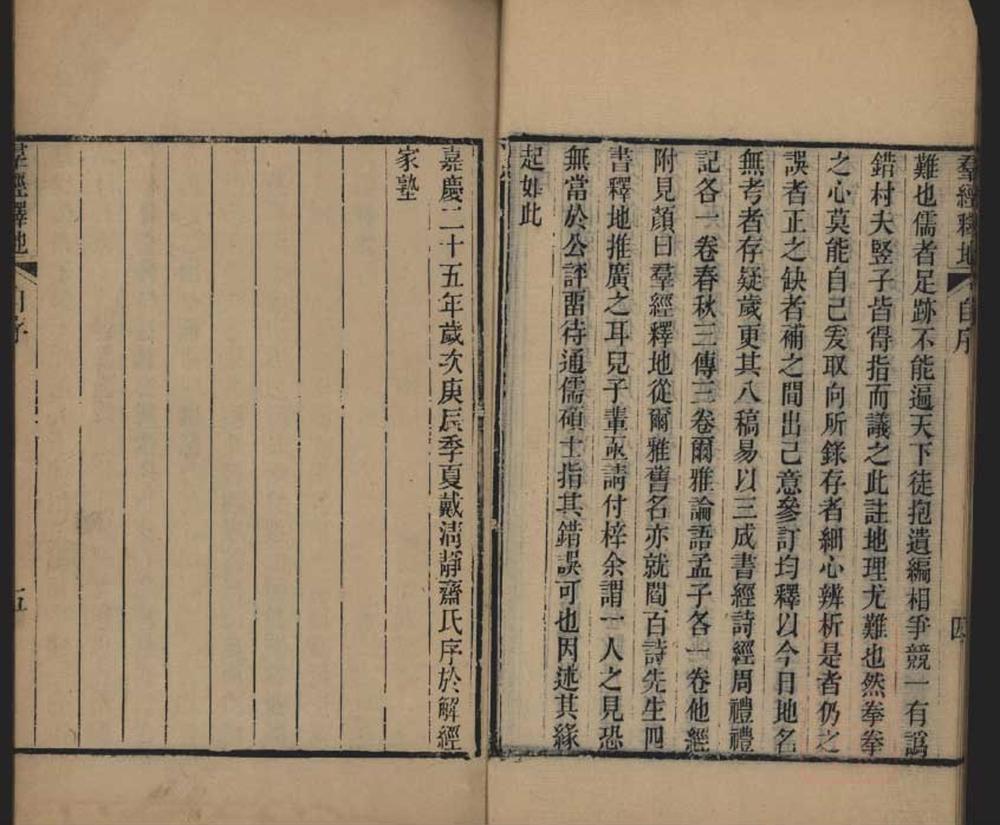 羣經釋地 自序 四
難也儒者足跡不能遍天下徒抱遺編相爭競一有譌
錯村夫豎子皆得指而議之此註地理尤難也然拳拳
之心莫能自己爰取向所錄存者細心辨析是者仍之
誤者正之缺者補之間出己意參訂均釋以今日地名
無考者存疑歲更其八稿易以三成書經詩經周禮禮
記各一卷春秋三傳三卷爾雅論語孟子各一卷他經
附見顏曰羣經釋地從爾雅舊名亦就閻百詩先生四
書釋地推廣之耳兒子輩亟請付梓余謂一人之見恐
無當於公評畱待通儒碩士指其錯誤可也因述其緣
起如此
嘉慶二十五年歲次庚辰季夏戴淸靜齋氏序於解經
家塾
羣經釋地 自序 五